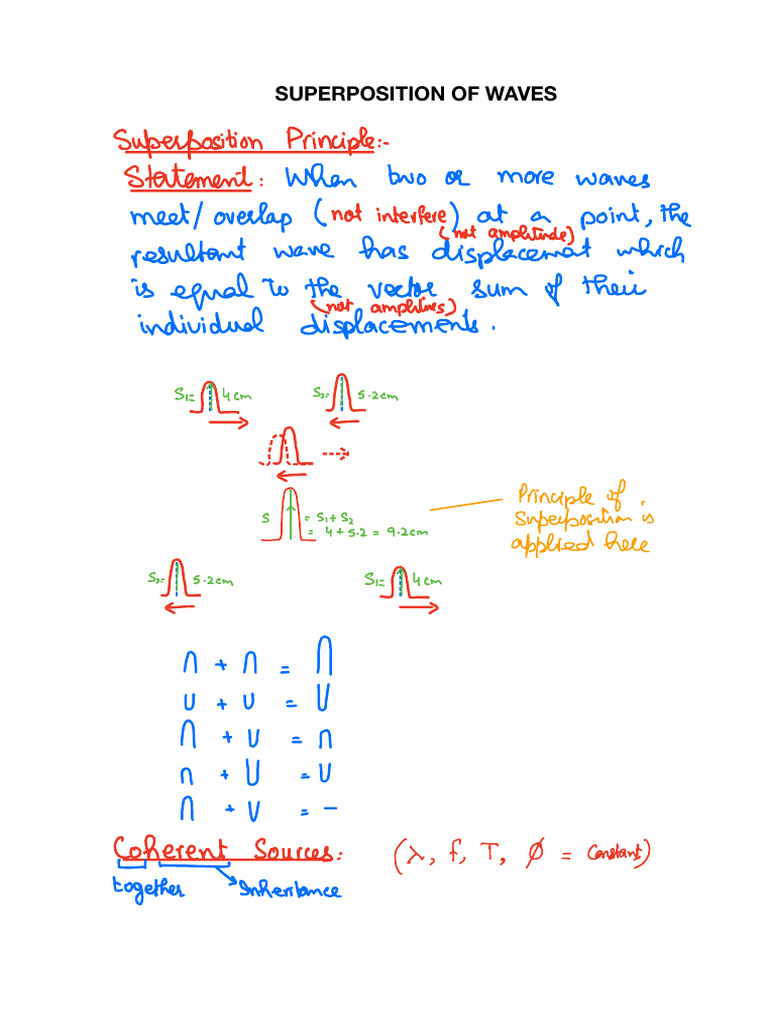 SUPERPOSITION OF WAVES
Superposition Principle:-
Statement: When two or more waves
meet/overlap (not interfere) at a point, the
(not amplitude)
resultant wave has displacement which
is equal to the vector sum of their
(not amplitudes)
individual displacements.
S1= 4cm S2= 5.2cm
S = S1+S2
= 4+5.2 = 9.2cm
Principle of
Superposition is
applied here
S2= 5.2cm S1= 4cm
∩ + ∩ = ∩
∪ + ∪ = ∪
∩ + ∪ = ∩
∩ + ∪ = ∪
∩ + ∪ = –
Coherent Sources: (λ, f, T, Ø = Constant)
together Inheritance